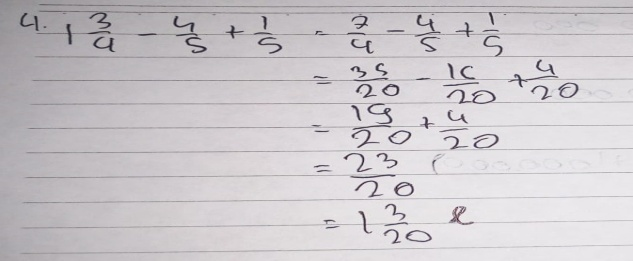 4. 1 3/4 - 4/5 + 1/5 = 7/4 - 4/5 + 1/5
= 35/20 - 16/20 + 4/20
= 19/20 + 4/20
= 23/20
= 1 3/20